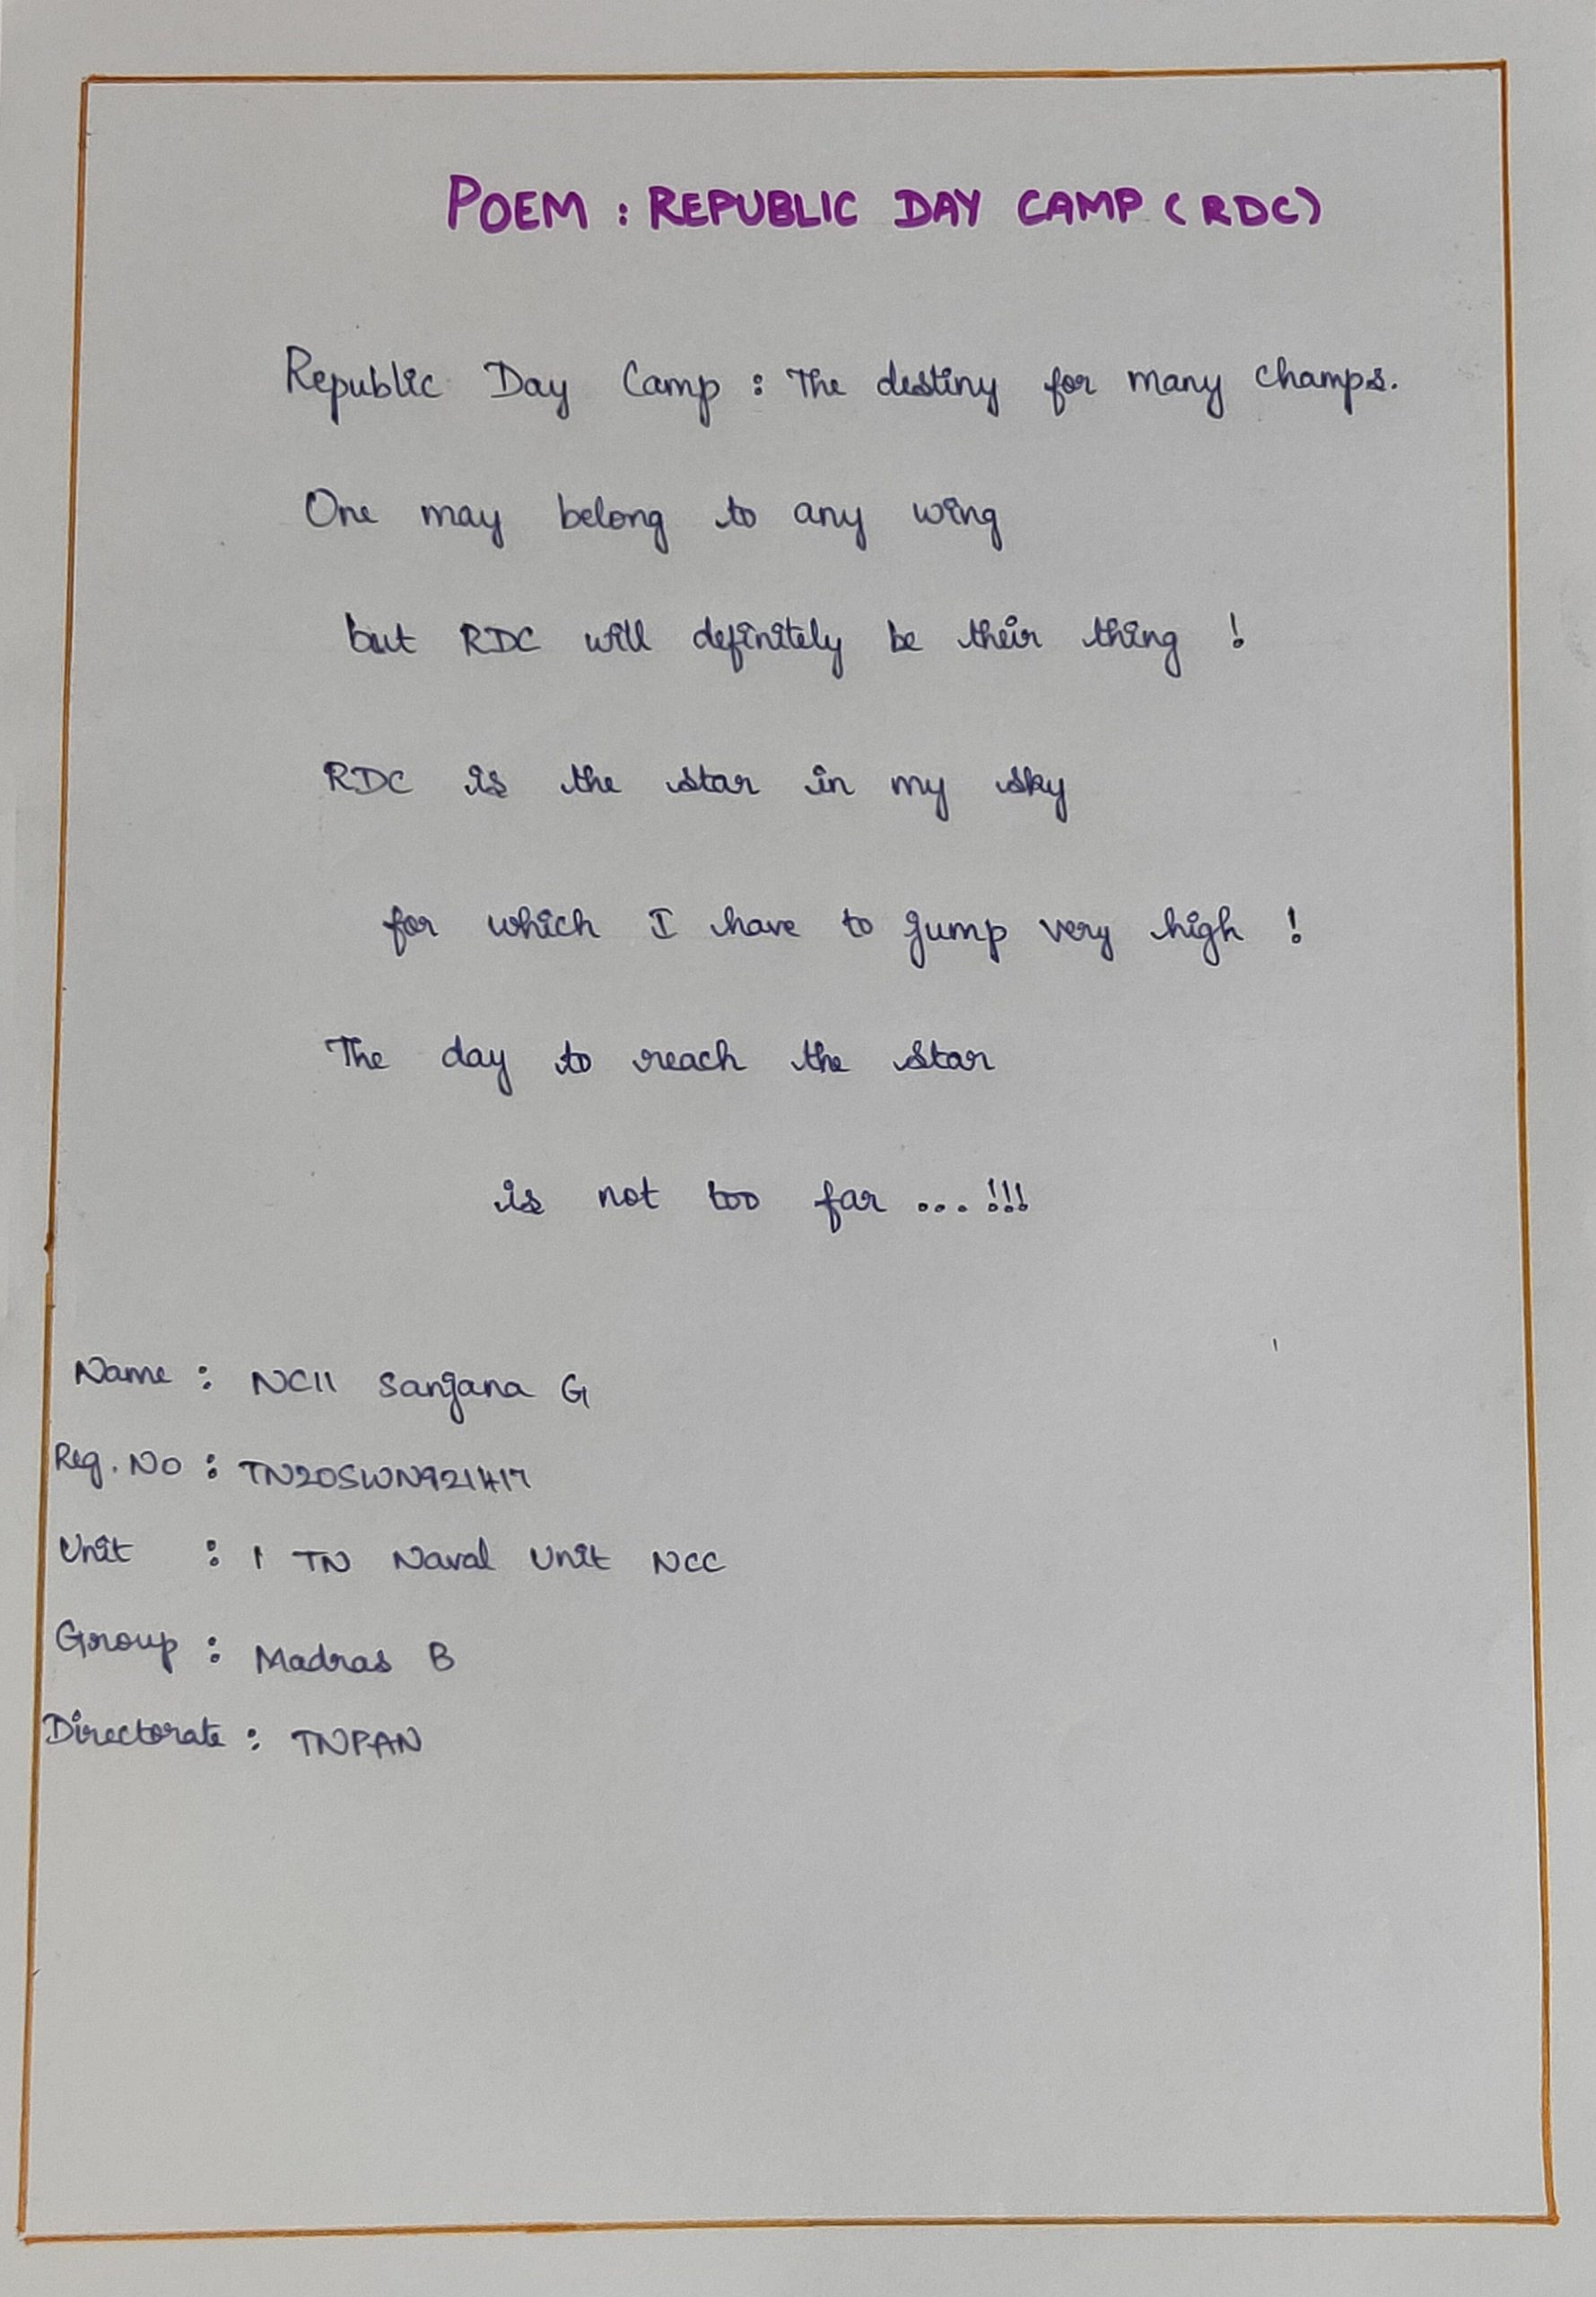 POEM : REPUBLIC DAY CAMP (RDC)
Republic Day Camp : The destiny for many champs.
One may belong to any wing
but RDC will definitely be their thing !
RDC is the star in my sky
for which I have to jump very high !
The day to reach the star
is not too far ... !!!
Name : NC11 Sanjana G
Reg. No : TN20SWN921417
Unit : 1 TN Naval Unit NCC
Group : Madras B
Directorate : TNPAN